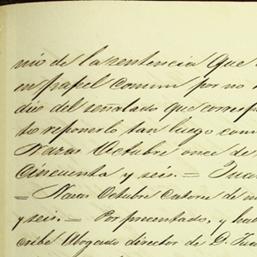 nio de la sentencia que
en papel comun por no
dio del señalado que corresp
to reponerlo tan luego com
Naras Octubre once de
cincuenta y seis. = Jua
= Naras Octubre Catorce de m
y seis. = Por presentado, y ha
cribe Abogado director de D. Jua